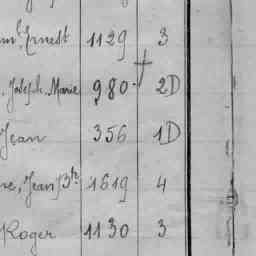 Ernest 1129 3
Joseph Marie 980 2D
Jean 356 1D
Jean 1619 4
Roger 1130 3